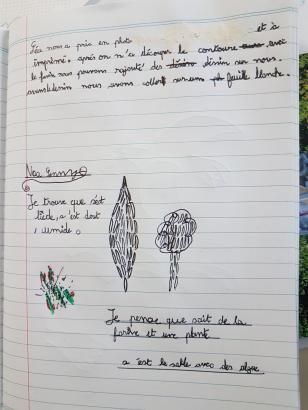 Léa nous a pris en photo et à
imprimé. après on n'a découper le contoure avec
le faite nous pouvons rajouté des désin sur nous.
avans nous avons collé sur une feuille blanche.
Nea
Je trouve que s'est
tiède, s'est dout
, umide.
Je pense que sait de la
farine et une plante
a c'est le sable avec des algue